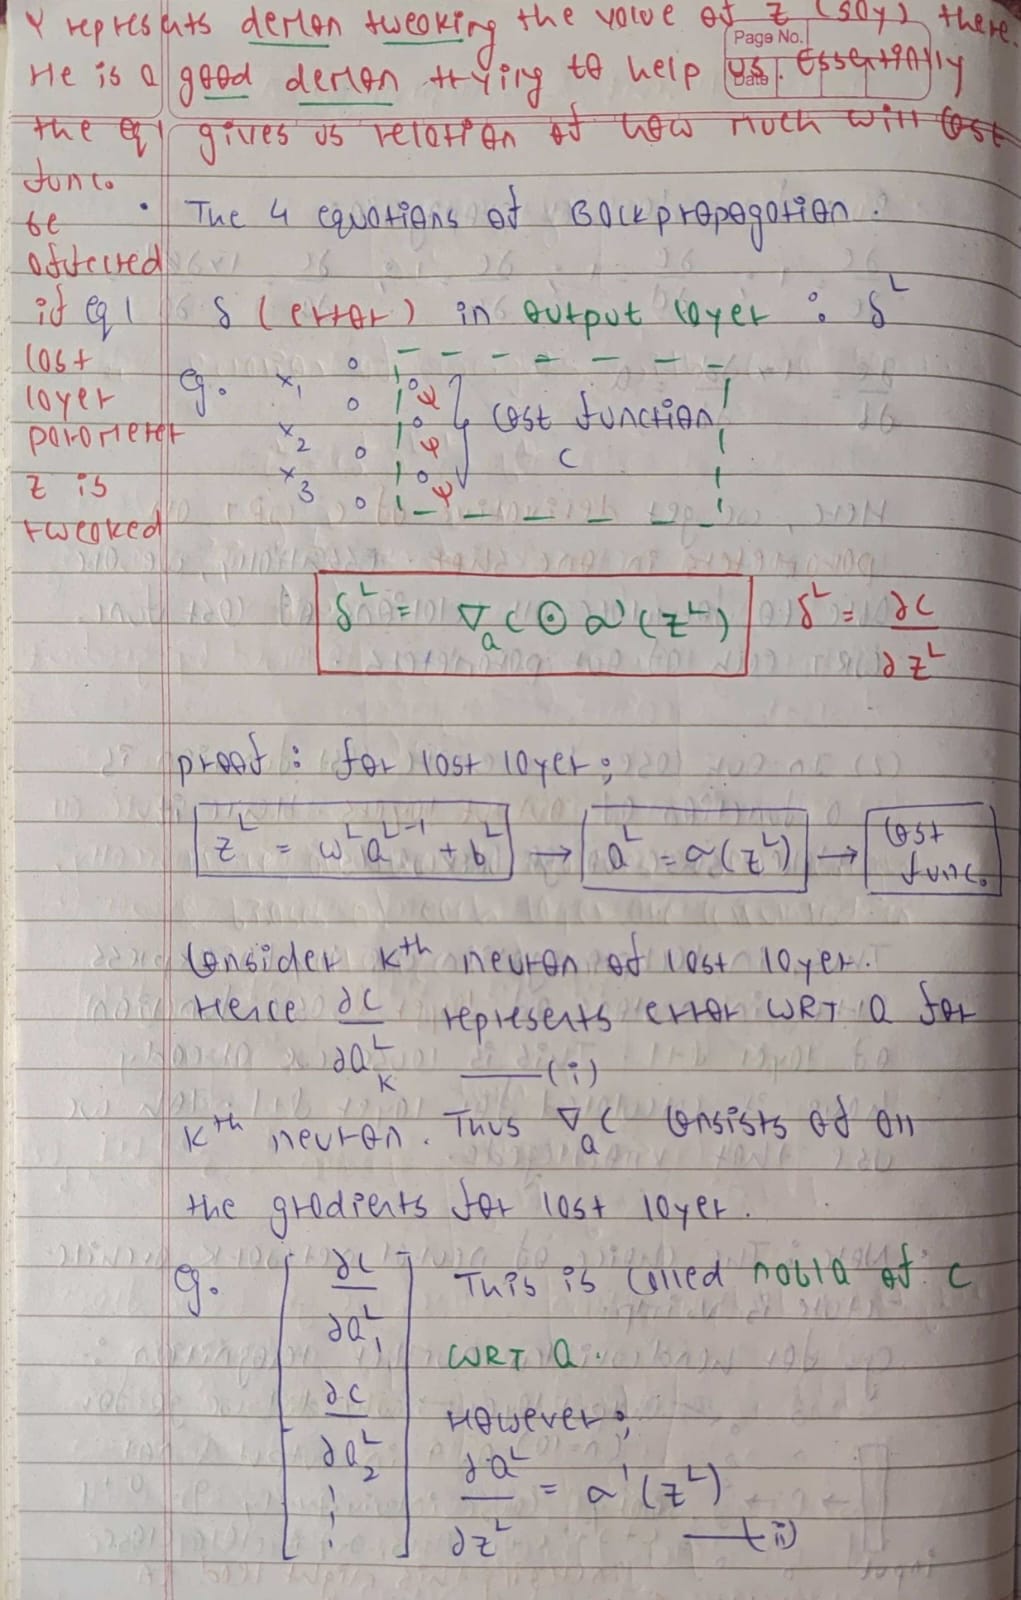 Ψ represents demon tweaking the value of z (say) there.
Page No.
He is a good demon trying to help us. Essentially
Date
the eq 1 gives us relation of how much will cost
func.
be
affected
if eq 1
last
layer
parameter
z is
tweaked
• The 4 equations of Backpropagation.
δ (error) in output layer : δ^L
eg. x₁ o o Ψ
x₂ o o Ψ cost function
x₃ o o Ψ C
o
δ^L = ∇_a C ⊙ σ'(z^L) δ^L = ∂C/∂z^L
proof : for last layer;
z^L = w^L a^{L-1} + b^L → a^L = σ(z^L) → Cost func.
Consider Kth neuron of last layer.
Hence ∂C/∂a^L_K represents error WRT a for
—(i)
Kth neuron. Thus ∇_a C consists of all
the gradients for last layer.
eg. [ ∂C/∂a^L_1 This is called nabla of C
WRT a.
∂C/∂a^L_2 However;
⋮ ] ∂a^L/∂z^L = σ'(z^L)
—(ii)